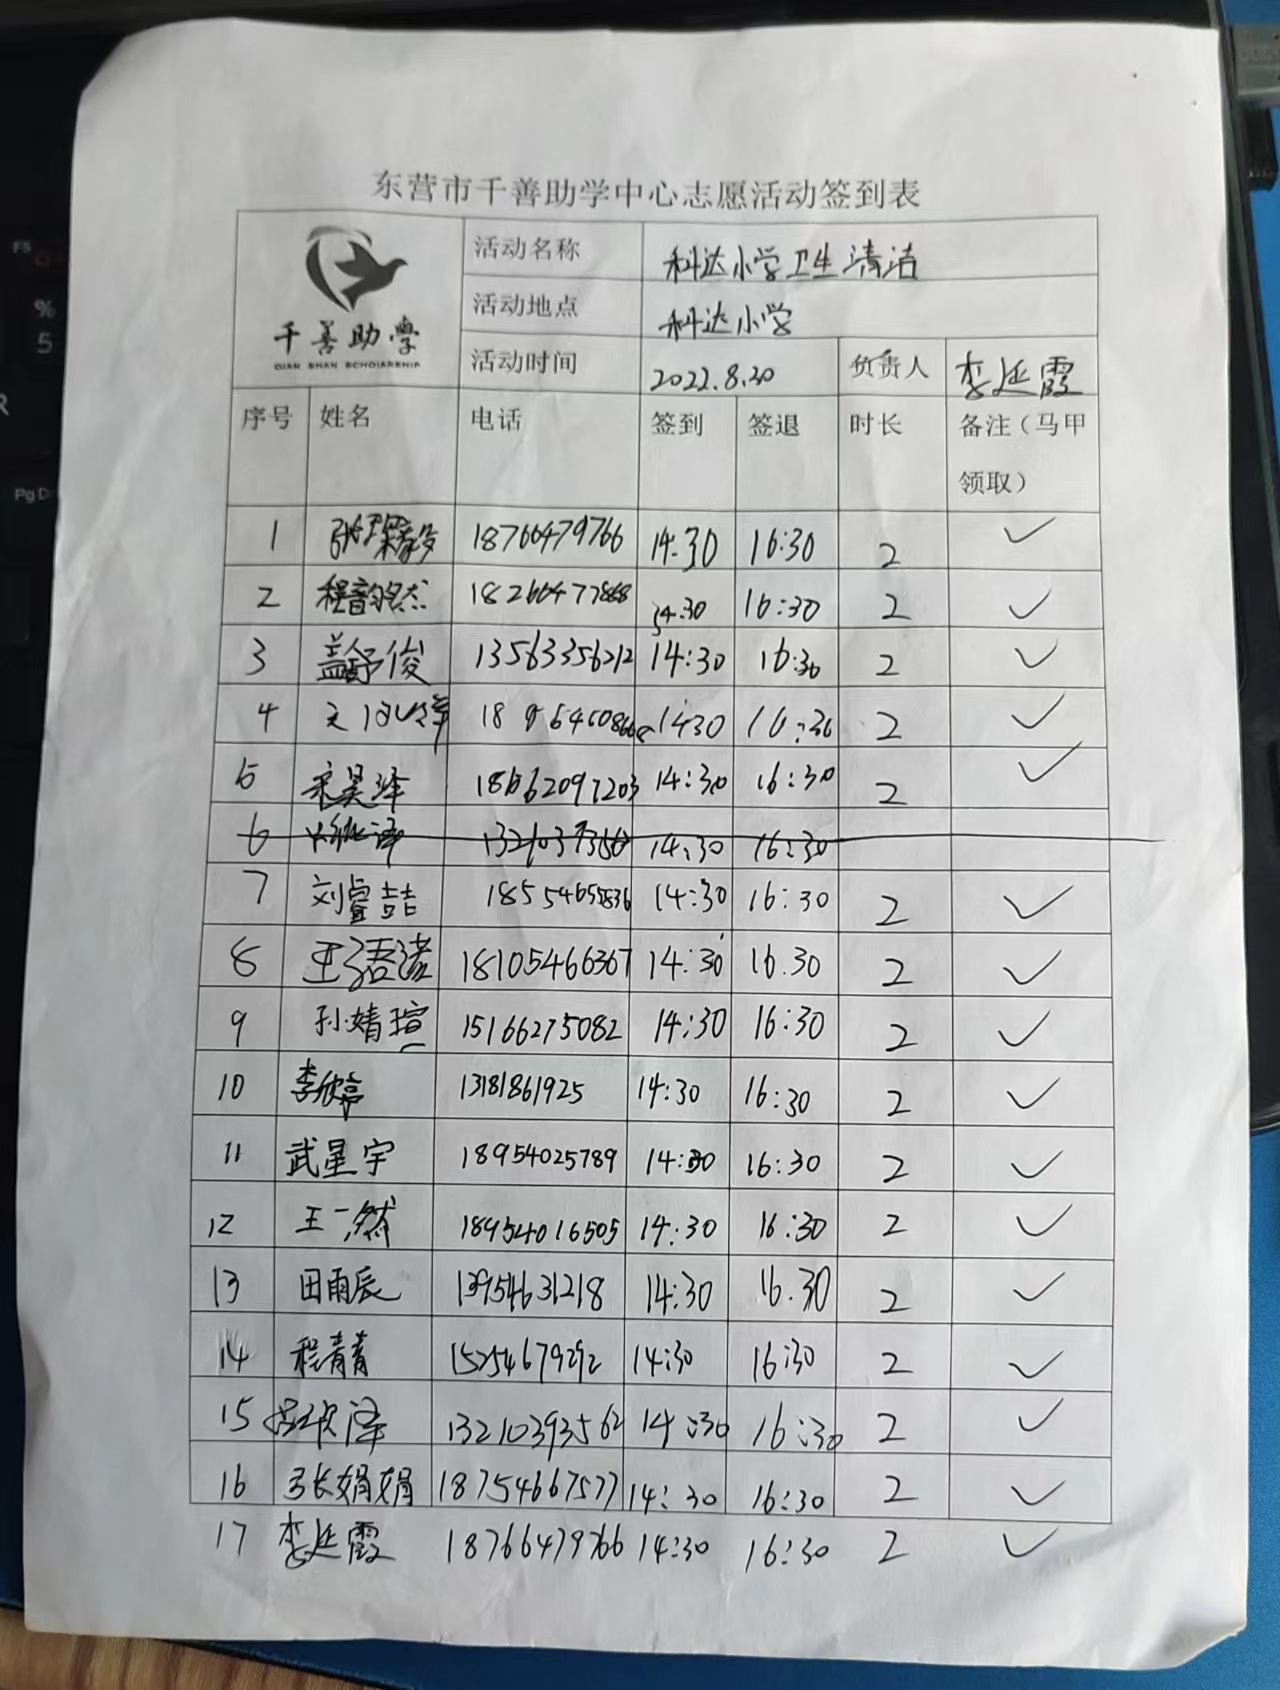 东营市千善助学中心志愿活动签到表
千善助学
QIAN SHAN SCHOIARSHIP
活动名称 科达小学卫生清洁
活动地点 科达小学
活动时间 2022.8.30 负责人 李廷霞
序号 姓名 电话 签到 签退 时长 备注（马甲领取）
1 18766479766 14:30 16:30 2 ✓
2 程韵杰 18266477868 14:30 16:30 2 ✓
3 盖舒俊 13563356212 14:30 16:30 2 ✓
4 14:30 16:30 2 ✓
5 宋昊泽 18662097203 14:30 16:30 2 ✓
6 14:30 16:30
7 刘睿喆 18554655836 14:30 16:30 2 ✓
8 18105466367 14:30 16.30 2 ✓
9 孙婧瑄 15166275082 14:30 16:30 2 ✓
10 李欣亭 13181861925 14:30 16:30 2 ✓
11 武星宇 18954025789 14:30 16:30 2 ✓
12 王一然 18954016505 14:30 16:30 2 ✓
13 田雨辰 13954631218 14:30 16.30 2 ✓
14 程菁菁 15254679292 14:30 16:30 2 ✓
15 13210393562 14:30 16:30 2 ✓
16 张娟娟 18754667577 14:30 16:30 2 ✓
17 李廷霞 18766479766 14:30 16:30 2 ✓
F5
%
5
R